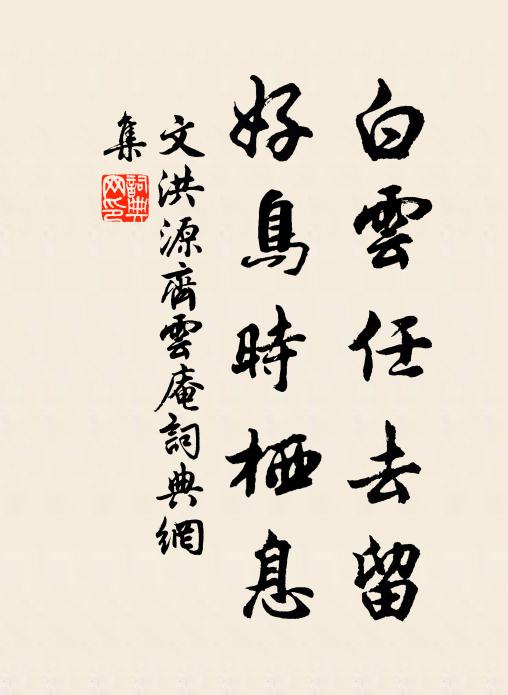 白雲任去留
好鳥時栖息
文洪源齊雲庵詞典網
集
詞典
网印